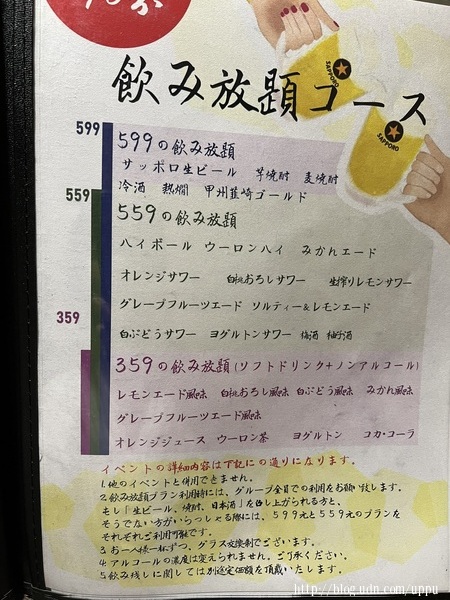 飲み放題コース
SAPPORO
SAPPORO
599
599の飲み放題
サッポロ生ビール 芋焼酎 麦焼酎
冷酒 熱燗 甲州韮崎ゴールド
559
559の飲み放題
ハイボール ウーロンハイ みかんエード
オレンジサワー 白桃おろしサワー 生搾りレモンサワー
グレープフルーツエード ソルティー&レモンエード
白ぶどうサワー ヨグルトンサワー 梅酒 柚子酒
359
359の飲み放題(ソフトドリンク+ノンアルコール)
レモンエード風味 白桃おろし風味 白ぶどう風味 みかん風味
グレープフルーツエード風味
オレンジジュース ウーロン茶 ヨグルトン コカ・コーラ
イベントの詳細内容は下記にの通りになります。
1.他のイベントと併用できません。
2.飲み放題プラン利用時には、グループ全員での利用をお願い致します。
もし「生ビール、焼酎、日本酒」を召し上がられる方と、
そうでない方がいらっしゃる際には、599元と559元のプランを
それぞれご利用可能です。
3.お一人様一杯ずつ、グラス交換制でございます。
4.アルコールの濃度は変えられません。ご了承ください。
5.飲み残しに関しては別途定価額を頂戴いたします。
http://blog.udn.com/uppu